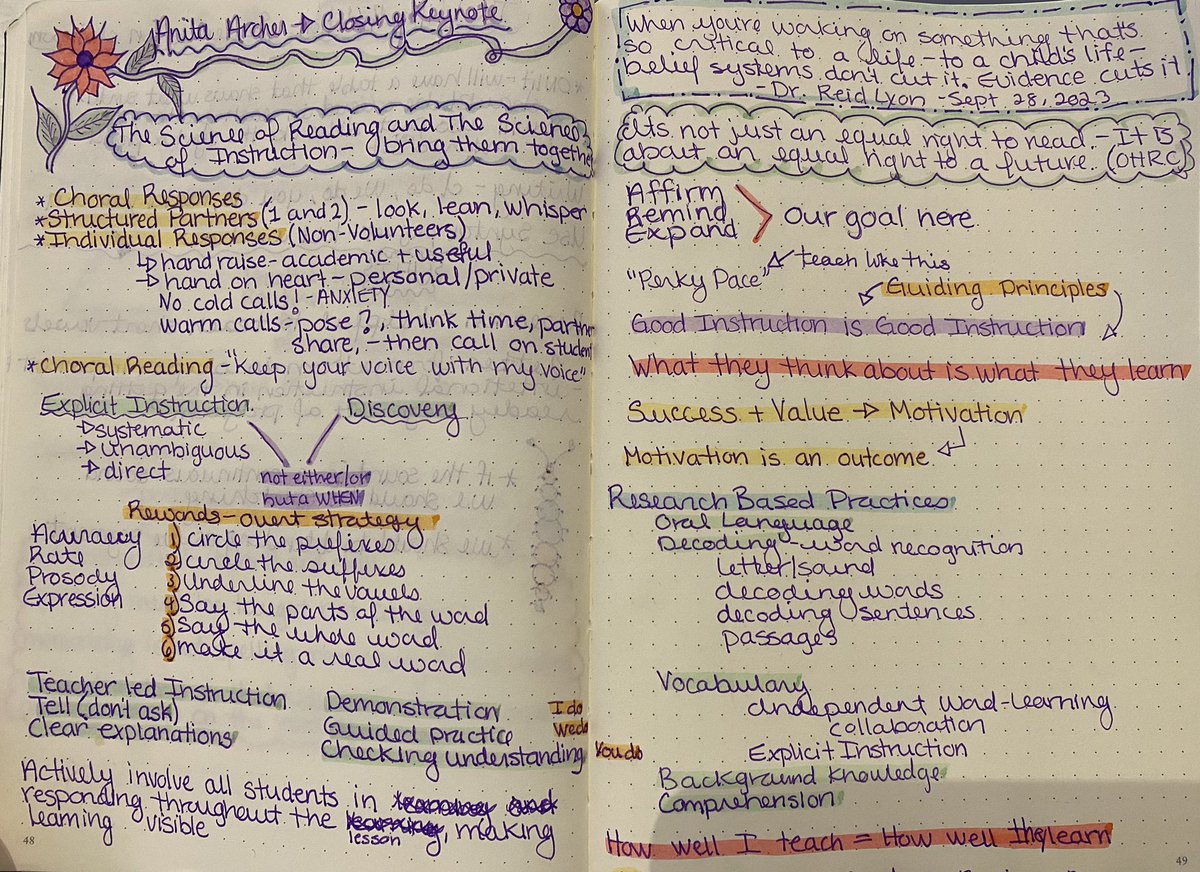 Anita Archer → Closing Keynote
The Science of Reading and The Science
of Instruction- bring them together
* Choral Responses
* Structured Partners (1 and 2) - look, lean, whisper
* Individual Responses (Non-Volunteers)
↳ hand raise - academic + useful
↳ hand on heart - personal/private
No cold calls! - ANXIETY
warm calls - pose ?, think time, partner
share, - then call on student
* Choral Reading - "Keep your voice with my voice"
Explicit Instruction Discovery
→ systematic
→ unambiguous
→ direct
not either/or
but a WHEN
Rewards - overt strategy
Accuracy
Rate
Prosody
Expression
1) circle the prefixes
2) circle the suffixes
3) underline the vowels
4) Say the parts of the word
5) Say the whole word
6) make it a real word
Teacher led Instruction
Tell (don't ask)
Clear explanations
Demonstration I do
Guided practice We do
Checking understanding You do
Actively involve all students in
responding throughout the lesson, making
learning visible
48
When you're working on something that's
so critical to a life - to a child's life -
belief systems don't cut it. Evidence cuts it
- Dr. Reid Lyon - Sept 28, 2023
Its not just an equal right to read - It is
about an equal right to a future. (OHRC)
Affirm
Remind
Expand
our goal here
"Perky Pace" ← teach like this
Guiding Principles
Good Instruction is Good Instruction
What they think about is what they learn
Success + Value → Motivation
Motivation is an outcome
Research Based Practices
Oral Language
Decoding - word recognition
letter/sound
decoding words
decoding sentences
passages
Vocabulary
Independent Word-learning
collaboration
Explicit Instruction
Background Knowledge
Comprehension
How well I teach = How well they learn
49